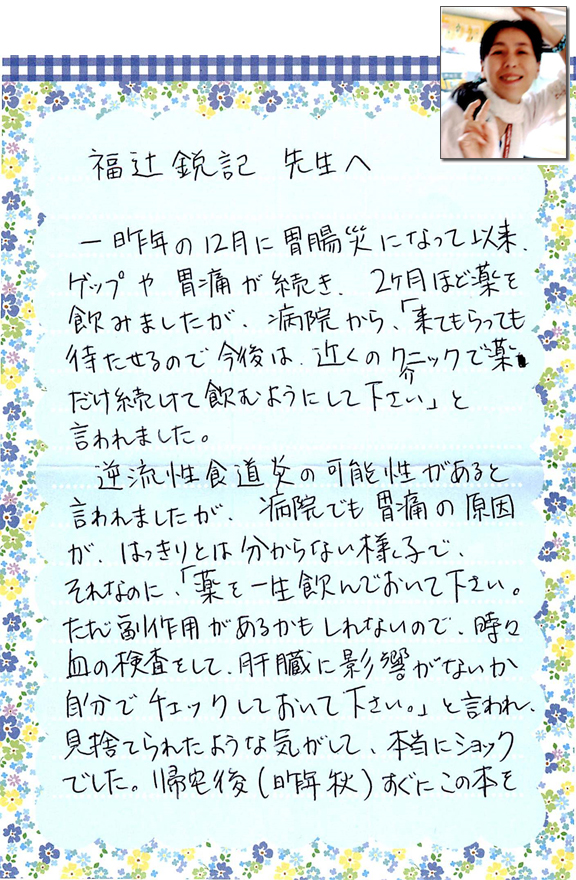 福辻鋭記 先生へ
一昨年の12月に胃腸炎になって以来、
ゲップや胃痛が続き、2ヶ月ほど薬を
飲みましたが、病院から、「来てもらっても
待たせるので今後は、近くのクニックで薬
だけ続けて飲むようにして下さい」と
言われました。
逆流性食道炎の可能性があると
言われましたが、病院でも胃痛の原因
が、はっきりとは分からない様子で、
それなのに、「薬を一生飲んでおいて下さい。
ただ副作用があるかもしれないので、時々
血の検査をして、肝臓に影響がないか
自分でチェックしておいて下さい。」と言われ、
見捨てられたような気がして、本当にショック
でした。帰宅後(昨年秋)すぐにこの本を